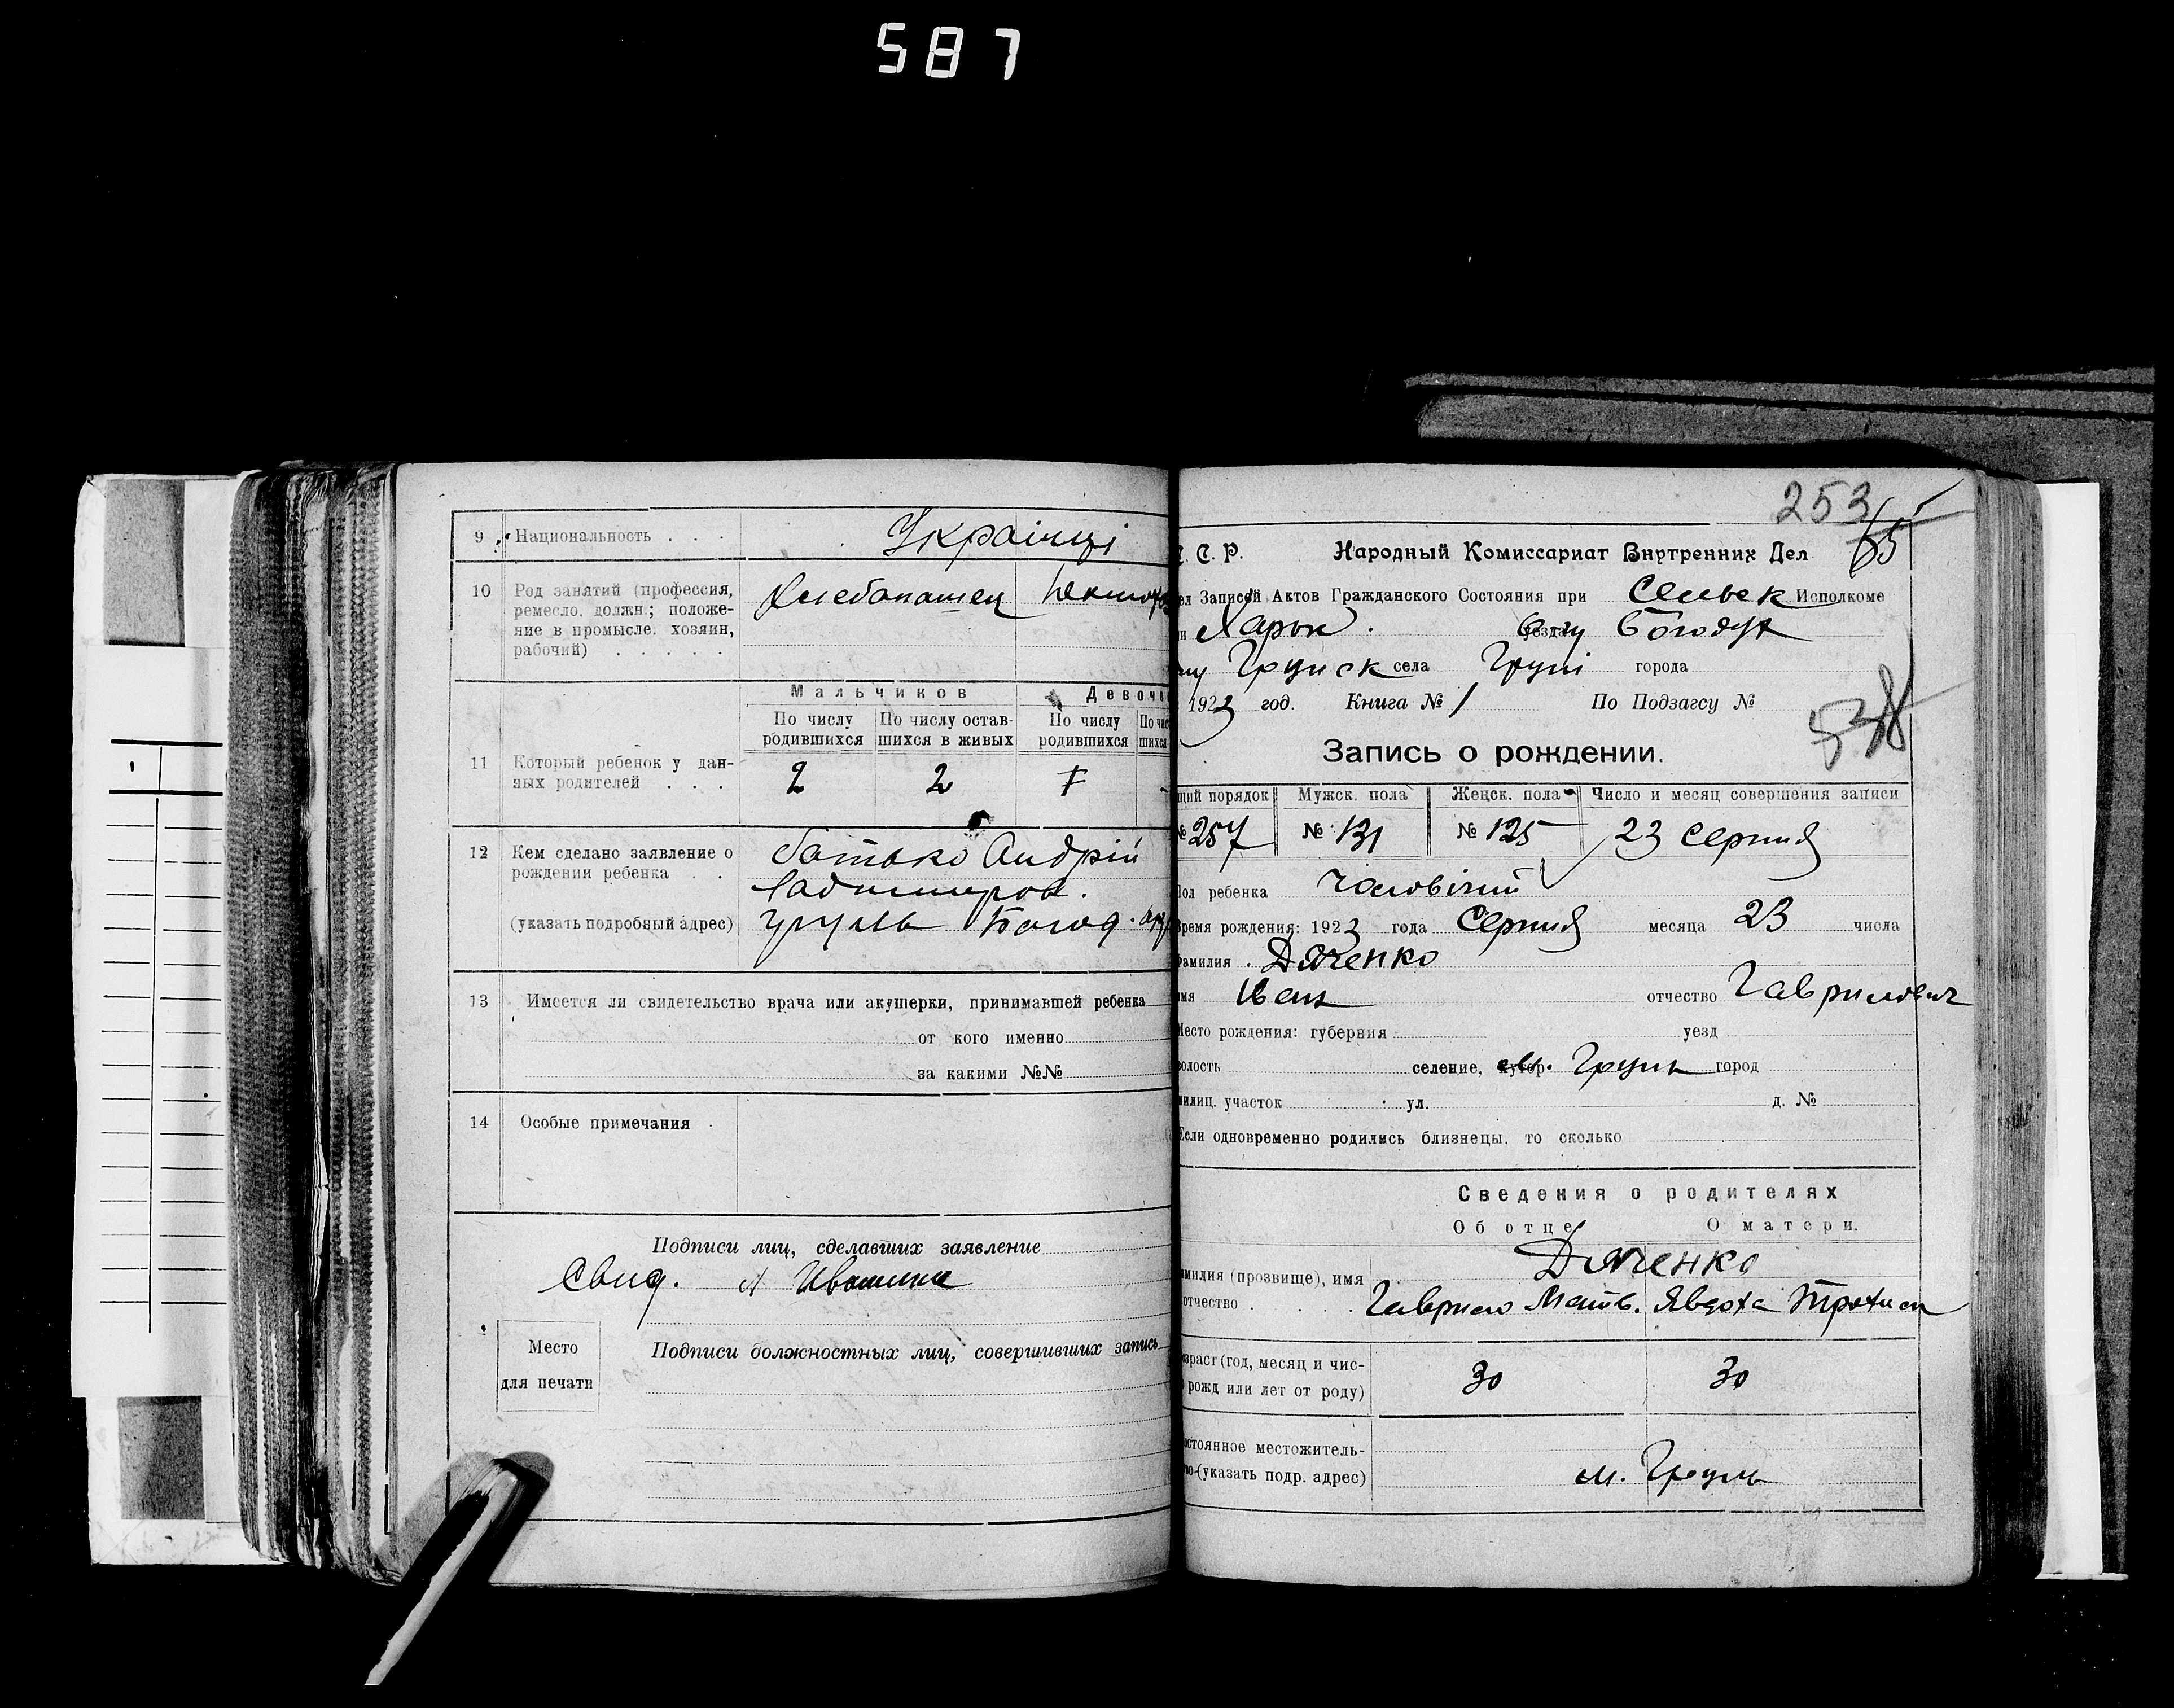 587
9 Национальность . . . Українці
10 Род занятий (профессия,
ремесло, должн.; положе-
ние в промысле, хозяин,
рабочий) . . . . .
Хлебопашец
Мальчиков Девоче
По числу родившихся
По числу остав-шихся в живых
По числу родившихся
11 Который ребенок у дан-
ных родителей . . .
2 2
12 Кем сделано заявление о
рождении ребенка . .
(указать подробный адрес)
батько Андрій
Богод.
13 Имеется ли свидетельство врача или акушерки, принимавшей ребенка
от кого именно
за какими №№
14 Особые примечания
Подписи лиц, сделавших заявление
Свид.
Место
для печати
Подписи должностных лиц, совершивших запись
253
65
С. Р. Народный Комиссариат Внутренних Дел
ел Записей Актов Гражданского Состояния при Исполкоме
и Харьк. уезда Богодух
села Груні города
1923 год. Книга № 1 По Подзагсу №
538
Запись о рождении.
щий порядок Мужск. пола Женск. пола Число и месяц совершения записи
№ 257 № 131 № 125 23 серпня
Пол ребенка Чоловічий
Время рождения: 1923 года Серпня месяца 23 числа
Фамилия Дяченко
Имя Иван отчество Гаврилович
Место рождения: губерния уезд
волость селение, хутор город
милиц. участок ул. д. №
Если одновременно родились близнецы, то сколько
Сведения о родителях
Об отце О матери.
Дяченко
амилия (прозвище), имя
отчество . . . . Гаврило Матв. Явдоха
зраст (год, месяц и чис-
рожд или лет от роду)
30 30
стоянное местожитель-
во (указать подр. адрес)
м. Грунь